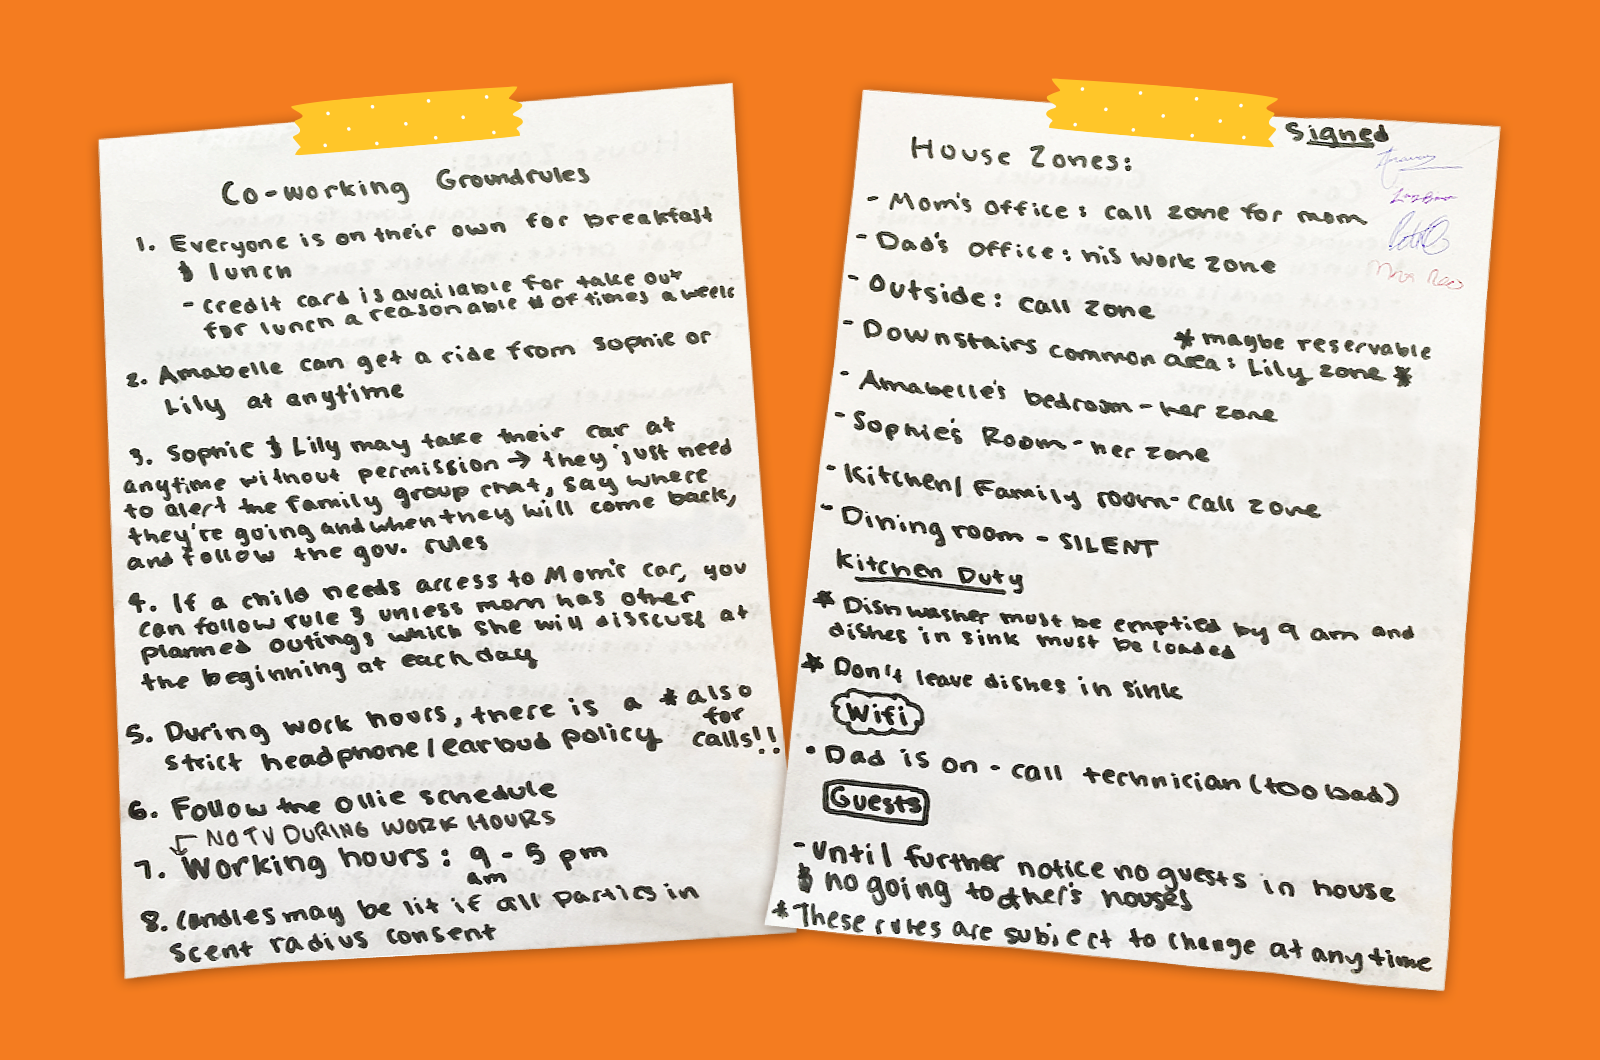 Co-working Groundrules
1. Everyone is on their own for breakfast
& lunch
- credit card is available for take out
for lunch a reasonable # of times a week
2. Amabelle can get a ride from Sophie or
Lily at anytime
3. Sophie & Lily may take their car at
anytime without permission → they just need
to alert the family group chat, say where
they're going and when they will come back,
and follow the gov. rules
4. If a child needs access to Mom's car, you
can follow rule 3 unless mom has other
planned outings which she will disscuss at
the beginning at each day
5. During work hours, there is a * also
strict headphone/earbud policy for
calls!!
6. Follow the Ollie schedule
NO TV DURING WORK HOURS
7. Working hours: 9 - 5 pm
am
8. Candles may be lit if all parties in
scent radius consent
Signed
House Zones:
- Mom's office: call zone for mom
- Dad's office: his work zone
- Outside: call zone
* maybe reservable
- Downstairs common area: Lily zone *
- Amabelle's bedroom - her zone
- Sophie's Room - her zone
- Kitchen/Family room - call zone
- Dining room - SILENT
Kitchen Duty
* Dishwasher must be emptied by 9 am and
dishes in sink must be loaded
* Don't leave dishes in sink
Wifi
• Dad is on-call technician (too bad)
Guests
- Until further notice no guests in house
& no going to other's houses
* These rules are subject to change at any time